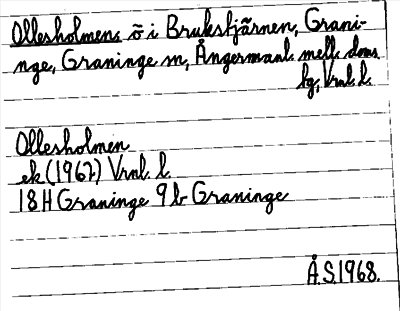 Ollesholmens ö i Brukstjärnen, Grani-
nge, Graninge sn, Ångermanl. mell. doms
sg, Vrnl. l.
Ollesholmen
ek (1967) Vrnl. l.
18H Graninge 9b Graninge
Å.S. 1968.